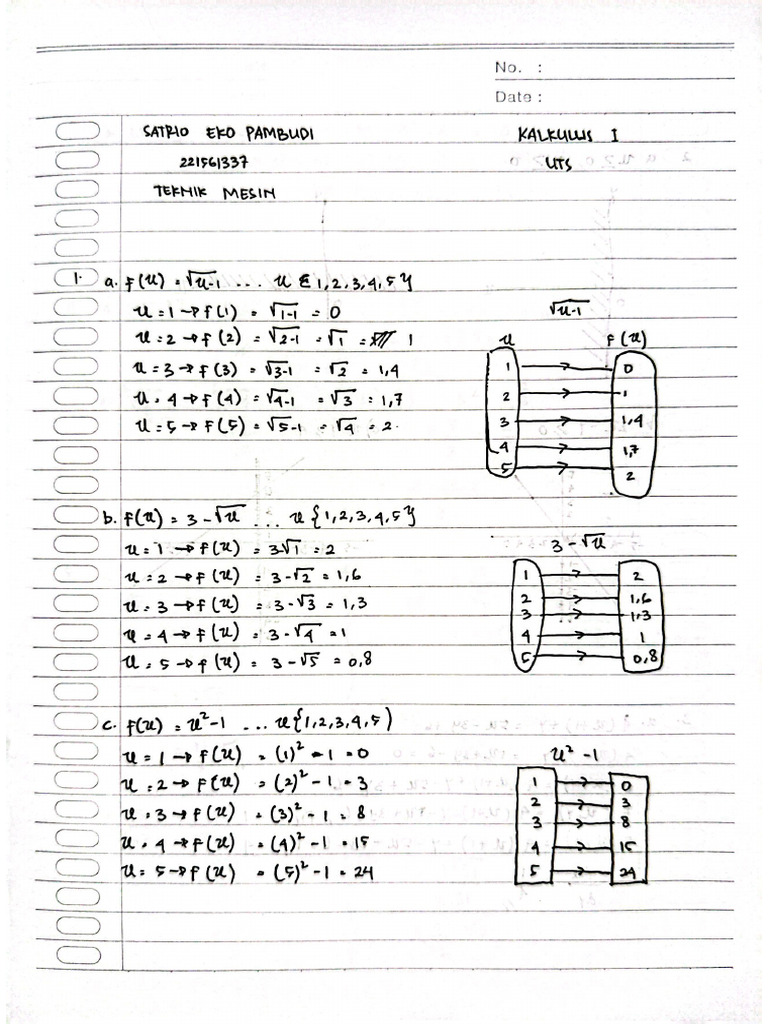 No. :
Date :
SATRIO EKO PAMBUDI KALKULUS I
221561337 UTS
TEKNIK MESIN
1. a. f(x) = √x-1 ... x ∈ 1,2,3,4,5}
x = 1 → f(1) = √1-1 = 0
x = 2 → f(2) = √2-1 = √1 = 1
x = 3 → f(3) = √3-1 = √2 = 1,4
x = 4 → f(4) = √4-1 = √3 = 1,7
x = 5 → f(5) = √5-1 = √4 = 2
√x-1
x f(x)
1 0
2 1
3 1,4
4 1,7
5 2
b. f(x) = 3-√x ... x {1,2,3,4,5}
x = 1 → f(x) = 3√1 = 2
x = 2 → f(x) = 3-√2 = 1,6
x = 3 → f(x) = 3-√3 = 1,3
x = 4 → f(x) = 3-√4 = 1
x = 5 → f(x) = 3-√5 = 0,8
3-√x
1 2
2 1,6
3 1,3
4 1
5 0,8
c. f(x) = x²-1 ... x{1,2,3,4,5)
x = 1 → f(x) = (1)² - 1 = 0
x = 2 → f(x) = (2)² - 1 = 3
x = 3 → f(x) = (3)² - 1 = 8
x = 4 → f(x) = (4)² - 1 = 15
x = 5 → f(x) = (5)² - 1 = 24
x² - 1
1 0
2 3
3 8
4 15
5 24